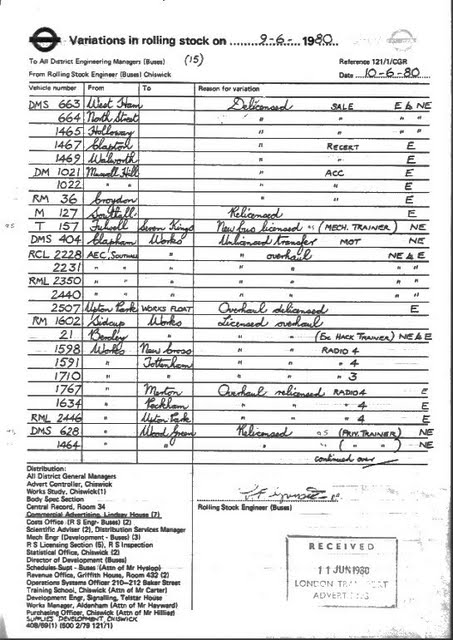 Variations in rolling stock on 9-6- 1980
To All District Engineering Managers (Buses) (15) Reference 121/1/CGR
From Rolling Stock Engineer (Buses) Chiswick Date 10-6-80
Vehicle number From To Reason for variation
DMS 663 West Ham Delicensed SALE E & NE
664 North Street " " " "
1465 Holloway " " " "
1467 Clapton " RECERT E
1469 Walworth " " E
DM 1021 Muswell Hill " ACC E
1022 " " " " E
RM 36 Croydon " E
M 127 Southall Relicensed E
T 157 Fulwell Seven Kings New bus licensed as (MECH. TRAINER) NE
DMS 404 Clapham Works Unlicensed transfer MOT NE
RCL 2228 AEC, Southall " " overhaul NE & E
2231 " " " " "
RML 2350 " " " " "
2440 " " " " "
2507 Upton Park WORKS FLOAT Overhaul delicensed E
RM 1602 Sidcup Works Licensed overhaul
21 Bexley " " " (Ex HACK TRAINER) NE & E
1598 Works New Cross " " RADIO 4
1591 " Tottenham " " " 4
1710 " " " " " 3
1767 " Merton Overhaul relicensed RADIO 4 E
1634 " Peckham " " " 4 E
RML 2446 " Upton Park " " " 4 E
DMS 628 " Wood Green Relicensed as (PRIV. TRAINER) NE
1464 " " " " ( " " ) NE
continued over
Distribution:
All District General Managers
Advert Controller, Chiswick
Works Study, Chiswick(1)
Body Spec Section
Central Record, Room 34
Commercial Advertising, Lindsay House (7)
Costs Office (R S Engr- Buses) (2)
Scientific Adviser (2), Distribution Services Manager
Mech Engr (Development - Buses) (3)
R S Licensing Section (5), R S Inspection
Statistical Office, Chiswick (2)
Director of Development (Buses)
Schedules Supt - Buses (Attn of Mr Hyslop)
Revenue Office, Griffith House, Room 432 (2)
Operations Systems Officer 210-212 Baker Street
Training School, Chiswick (Attn of Mr Carter)
Development Engr, Signalling, Telstar House
Works Manager, Aldenham (Attn of Mr Hayward)
Purchasing Officer, Chiswick (Attn of Mr Hillier)
SUPPLIES DEVELOPMENT, CHISWICK
408/69(1) (500 2/79 121/1)
Rolling Stock Engineer (Buses)
RECEIVED
11 JUN 1980
LONDON TRANSPORT
ADVERTISING